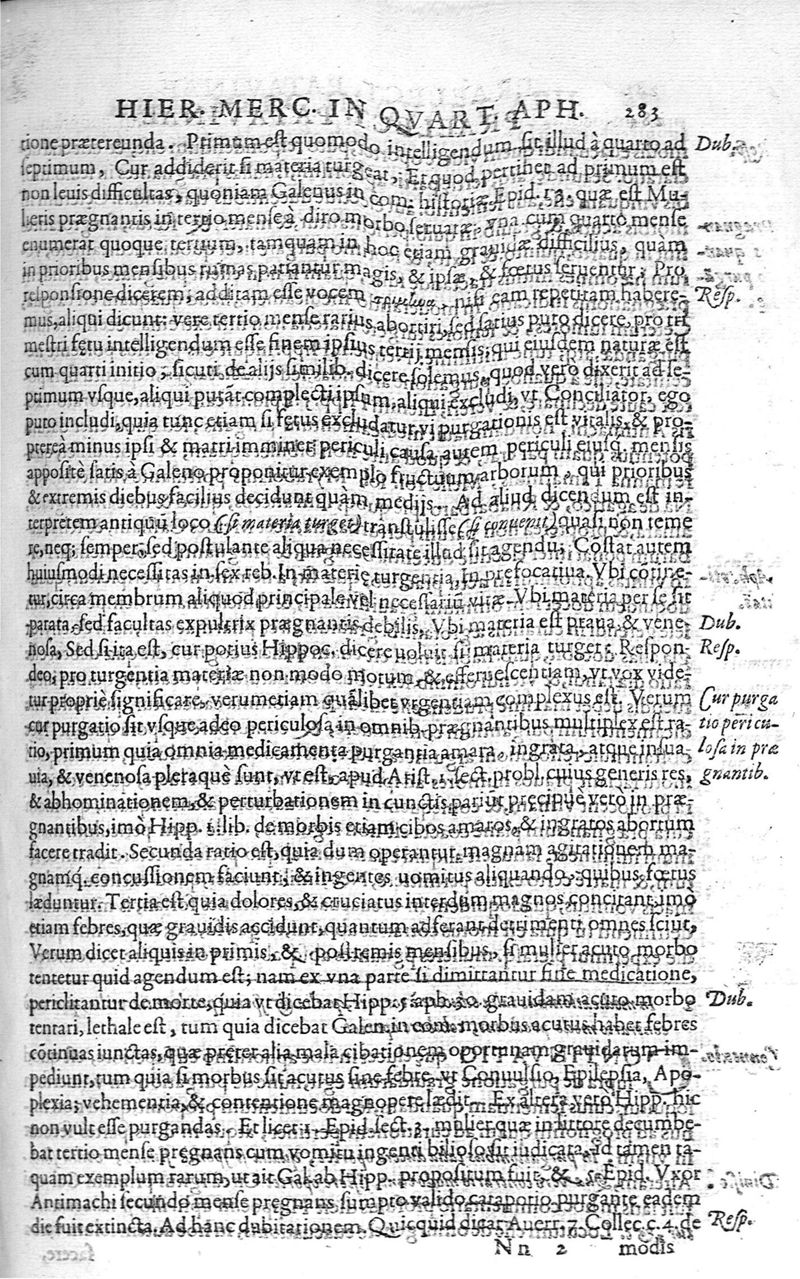 HIER. MERC. IN QVART. APH. 283
tione prætereunda. Primum est quomodo intelligendum sit illud à quarto ad Dub.
septimum, Cur addiderit si materia turgeat, Et quod pertinet ad primum est
non leuis difficultas, quoniam Galenus in com. historiæ Epid. quæ est Mu-
lieris prægnantis in tertio mense à diro morbo seruatæ, vna cum quarto mense
enumerat quoque tertium, tamquam in hoc etiam grauidæ difficilius, quàm
in prioribus mensibus ruinas patiantur magis, & ipsæ, & fœtus seruentur; Pro
responsione dicerem, additam esse vocem nisi eam repetitam habere- Resp.
mus, aliqui dicunt: vere tertio mense rarius abortiri, sed satius puto dicere, pro tri
mestri fetu intelligendum esse finem ipsius tertij mensis: qui eiusdem naturæ est
cum quarti initio, sicuti de alijs similib. dicere solemus, quod vero dixerit ad se-
ptimum vsque, aliqui putãt complecti ipsum, aliqui excludi, vt Conciliator, ego
puto includi, quia tunc etiam si fetus excludatur vi purgationis est vitalis, & pro-
ptereà minus ipsi & matri imminet periculi, causa autem periculi eiusq. mensis
appositè satis à Galeno proponitur exemplo fructuum arborum, qui prioribus
& extremis diebus facilius decidunt quàm medijs. Ad aliud dicendum est in-
terpretem antiquũ loco (si materia turget) transtulisse (si conuenit) quasi non teme
re, neq; semper, sed postulante aliqua necessitate illud sit agendũ; Cõstat autem
huiusmodi necessitas in sex reb. In materie turgentia, In prefocatiua. Vbi
tur, circa membrum aliquod principale vel necessariũ vitæ. Vbi materia per se sit
parata, sed facultas expultrix prægnantis debilis, Vbi materia est praua, & vene- Dub.
nosa, Sed si ita est, cur potius Hippoc. dicere uoluit si materia turget; Respon- Resp.
deo; pro turgentia materiæ non modo motum, & efferuescentiam, vt vox vide-
tur propriè significare, verumetiam quãlibet vrgentiam complexus est. Verum Cur purga
cur purgatio sit vsque adeo periculosa in omnib. prægnantibus multiplex est ra- tio pericu-
tio, primum quia omnia medicamenta purgantia amara, ingrata, atque insua- losa in præ
uia, & venenosa pleraque sunt, vt est, apud Arist. 1. sect. probl. cuius generis res, gnantib.
& abhominationem, & perturbationem in cunctis pariũt precipue vero in præ-
gnantibus, imò Hipp. 1. lib. de morbis etiam cibos amaros, & ingratos abortum
facere tradit. Secunda ratio est, quia dum operantur, magnam agitationem ma-
gnamq. concussionem faciunt, & ingentes uomitus aliquando, quibus fœtus
læduntur. Tertia est, quia dolores, & cruciatus interdum magnos concitant, imò
etiam febres, quæ grauidis accidunt, quantum adferant detrimenti, omnes sciũt,
Verum dicet aliquis in primis, & postremis mensibus, si mulier acuto morbo
tentetur quid agendum est; nam ex vna parte si dimittantur sine medicatione,
periclitantur de morte, quia vt dicebat Hipp. 5. aph. 30. grauidam acuto morbo Dub.
tentari, lethale est, tum quia dicebat Galen. in com. morbus acutus habet febres
cõtinuas iunctas, quæ preter alia mala cibationem oportunam grauidarum im-
pediunt, tum quia si morbus sit acutus sine febre, vt Conuulsio, Epilepsia, Apo-
plexia; vehementia, & contentione magnopere lædit. Ex altera vero Hipp. hic
non vult esse purgandas. Et licet 1. Epid. sect. 3. mulier quæ in littore decumbe-
bat tertio mense pregnans cum vomitu ingenti bilioso sit iudicata, id tamen ta-
quam exemplum rarum, ut ait Gal. ab Hipp. propositum fuit, & 5. Epid. Vxor
Antimachi secundo mense pregnans, sumpto valido catapotio purgante eadem
die fuit extincta. Ad hanc dubitationem. Quicquid dicat Auerr. 7. Collec. c. 4. de Resp.
Nn 2 modis